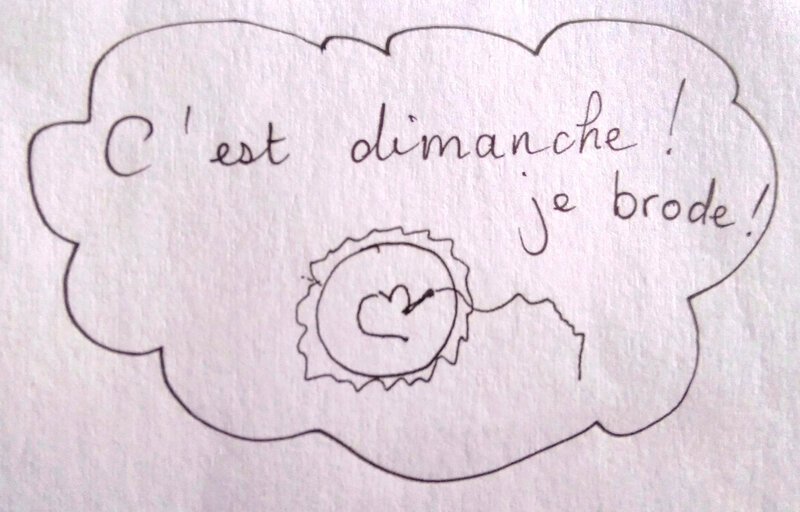 C'est dimanche !
je brode !